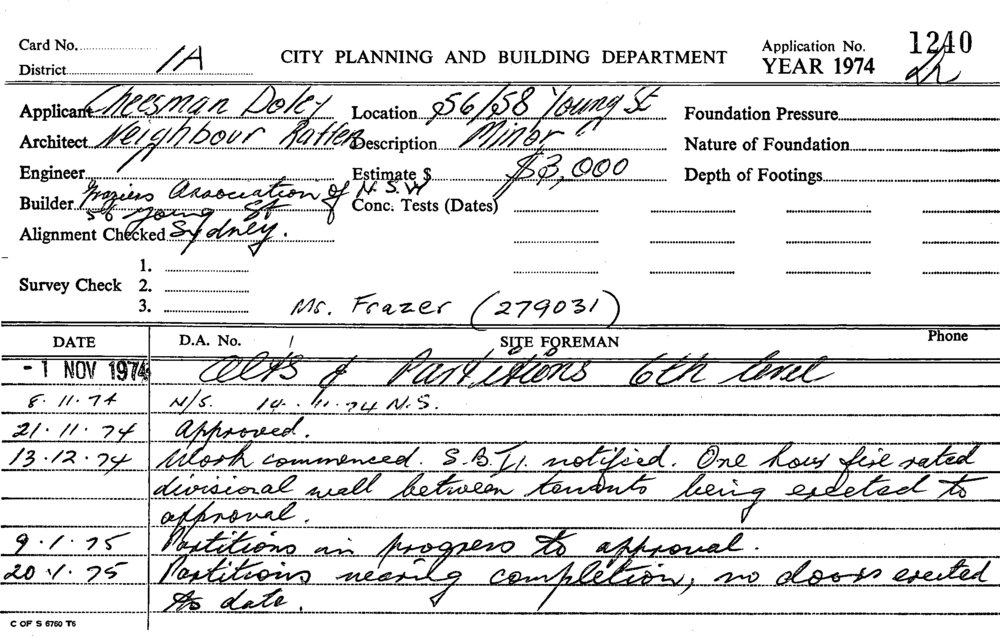 Card No. Application No. 1240
District 1A CITY PLANNING AND BUILDING DEPARTMENT YEAR 1974
Applicant Cheesman Doley Location 56/58 Young St Foundation Pressure
Architect Neighbour Raffen Description Minor Nature of Foundation
Engineer Estimate $ $3,000 Depth of Footings
Builder Graziers Association of N.S.W Conc. Tests (Dates)
56 Young St
Alignment Checked Sydney.
1.
Survey Check 2.
3. Mr. Frazer (279031)
DATE D.A. No. SITE FOREMAN Phone
- 1 NOV 1974 Alts & Partitions 6th level
8.11.74 N/S. 14.11.74 N.S.
21.11.74 Approved.
13.12.74 Work commenced. S.B.I. notified. One hour fire rated
divisional wall between tenants being erected to
approval.
9.1.75 Partitions in progress to approval.
20.1.75 Partitions nearing completion, no doors erected
to date.
C OF S 6760 T6